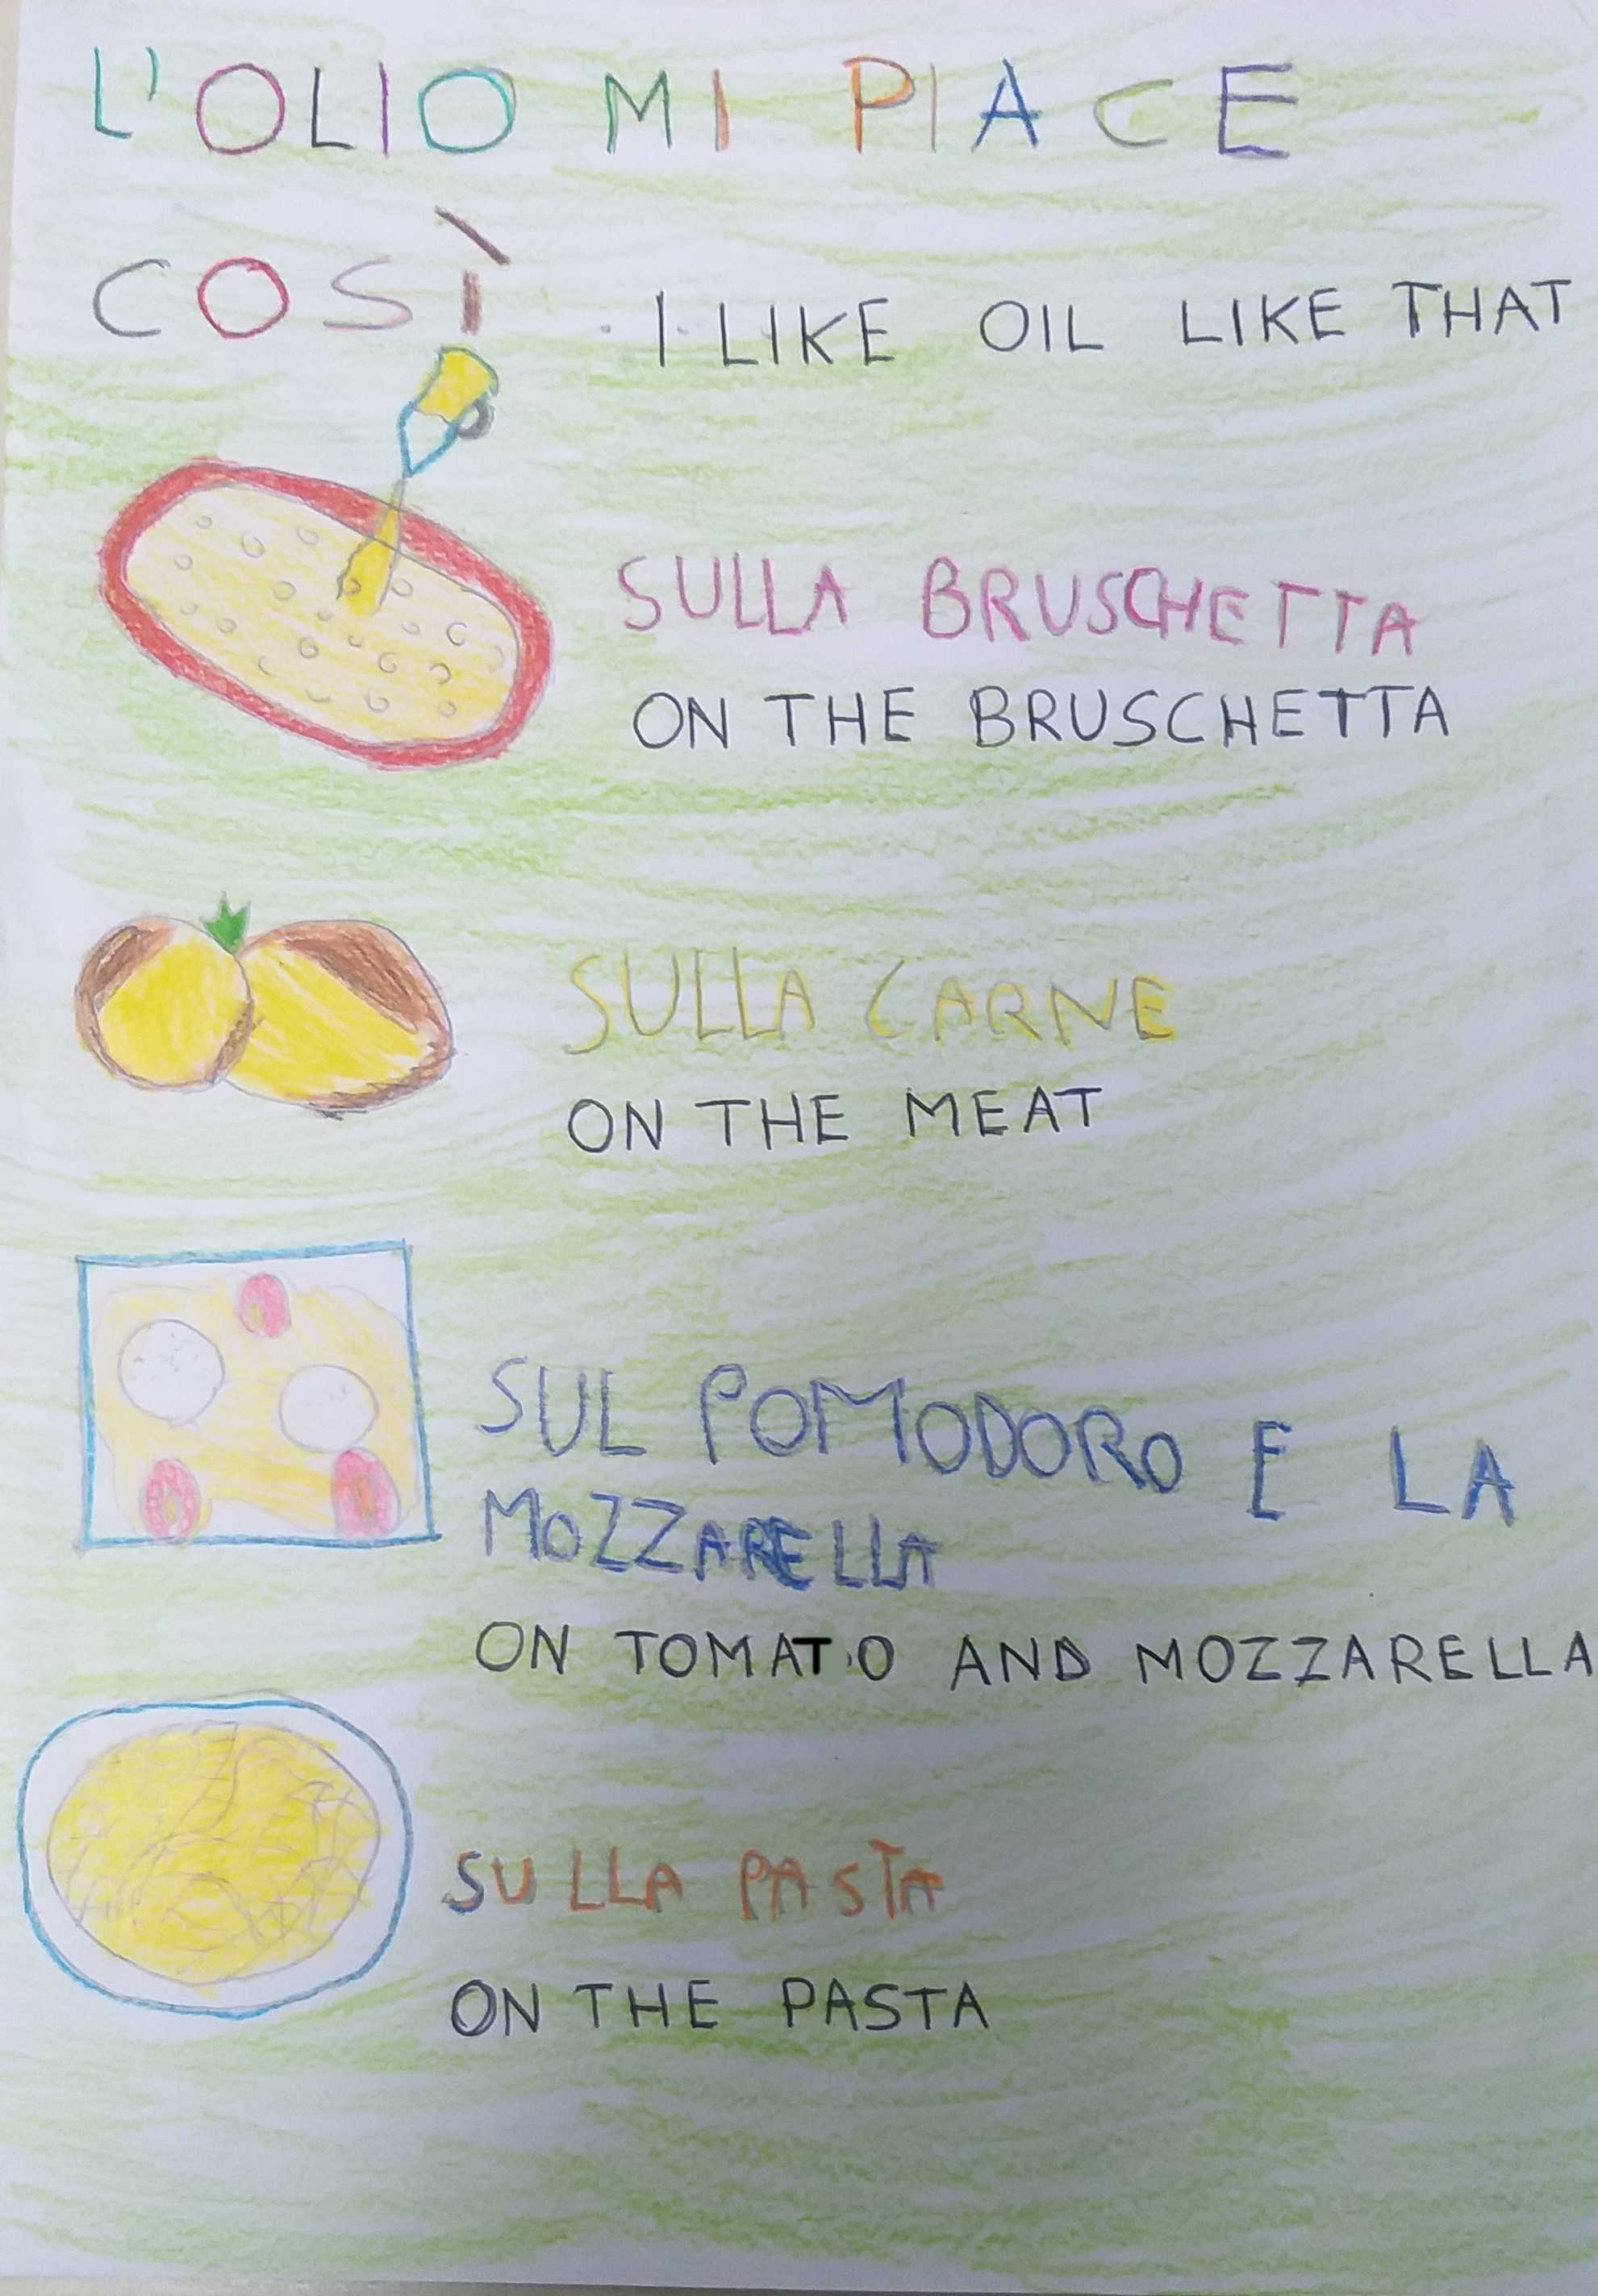 L'OLIO MI PIACE
COSÌ
I LIKE OIL LIKE THAT
SULLA BRUSCHETTA
ON THE BRUSCHETTA
SULLA CARNE
ON THE MEAT
SUL POMODORO E LA
MOZZARELLA
ON TOMATO AND MOZZARELLA
SULLA PASTA
ON THE PASTA